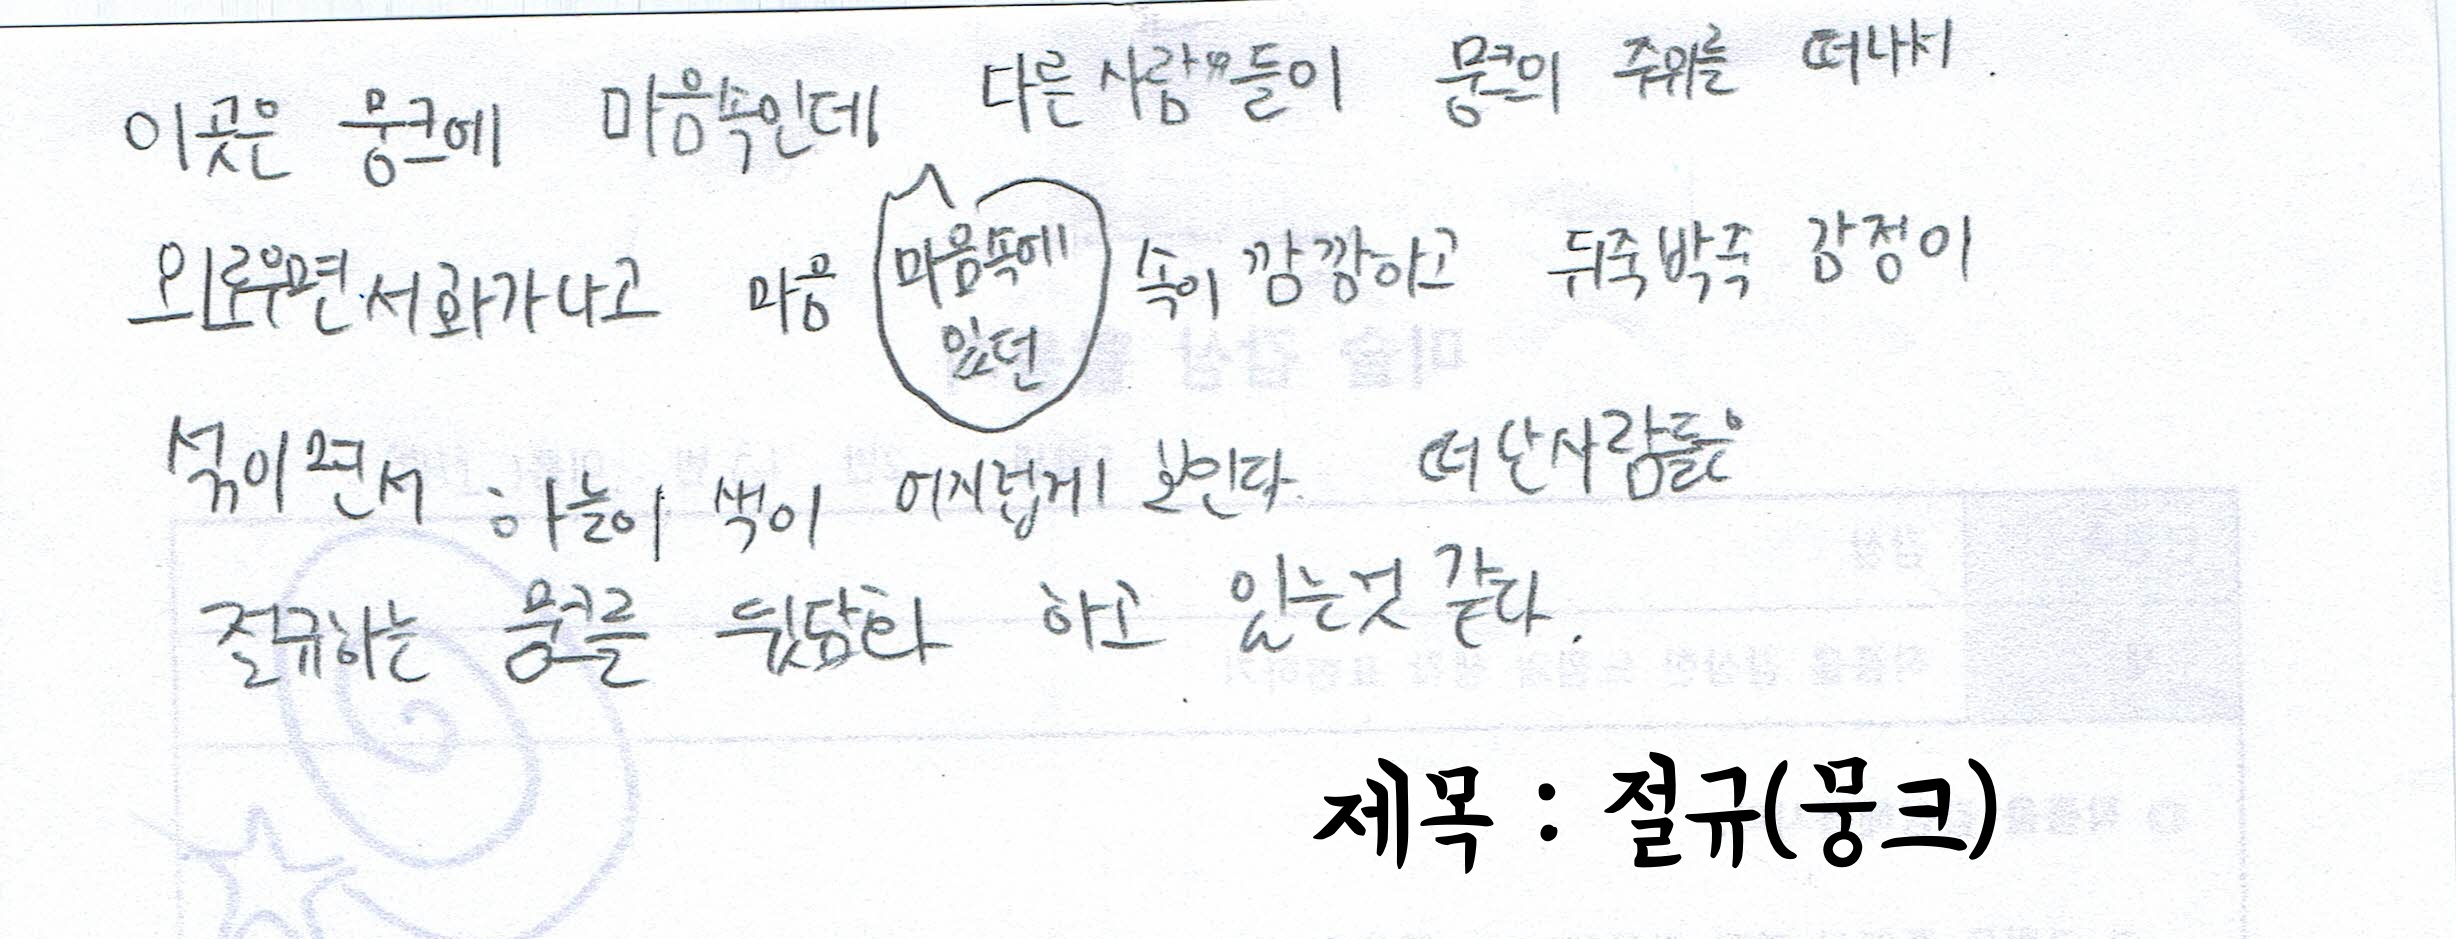 이곳은 뭉크에 마음속인데 다른 사람들이 뭉크의 주위를 떠나서.
외로우면서 화가나고 마음 속이 깜깜하고 뒤죽박죽 감정이
마음속에
있던
섞이면서 하늘이 색이 어지럽게 보인다. 떠난사람들은
절규하는 뭉크를 뒷담화 하고 있는것 같다.
제목 : 절규(뭉크)
미술 감상
감상
작품을 감상한 느낌과 생각 표현하기